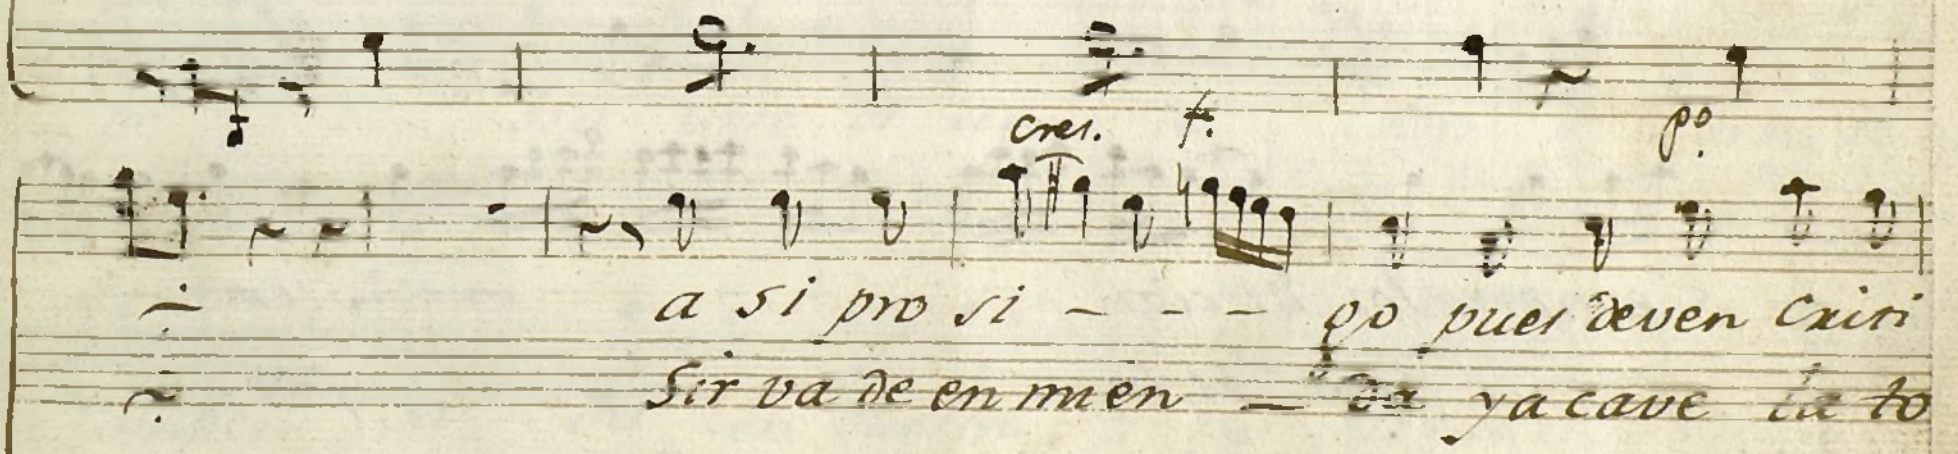 cres. f. po.
a si pro si - - - go pues deven Criti
Sir va de en mien - da ya cave la to